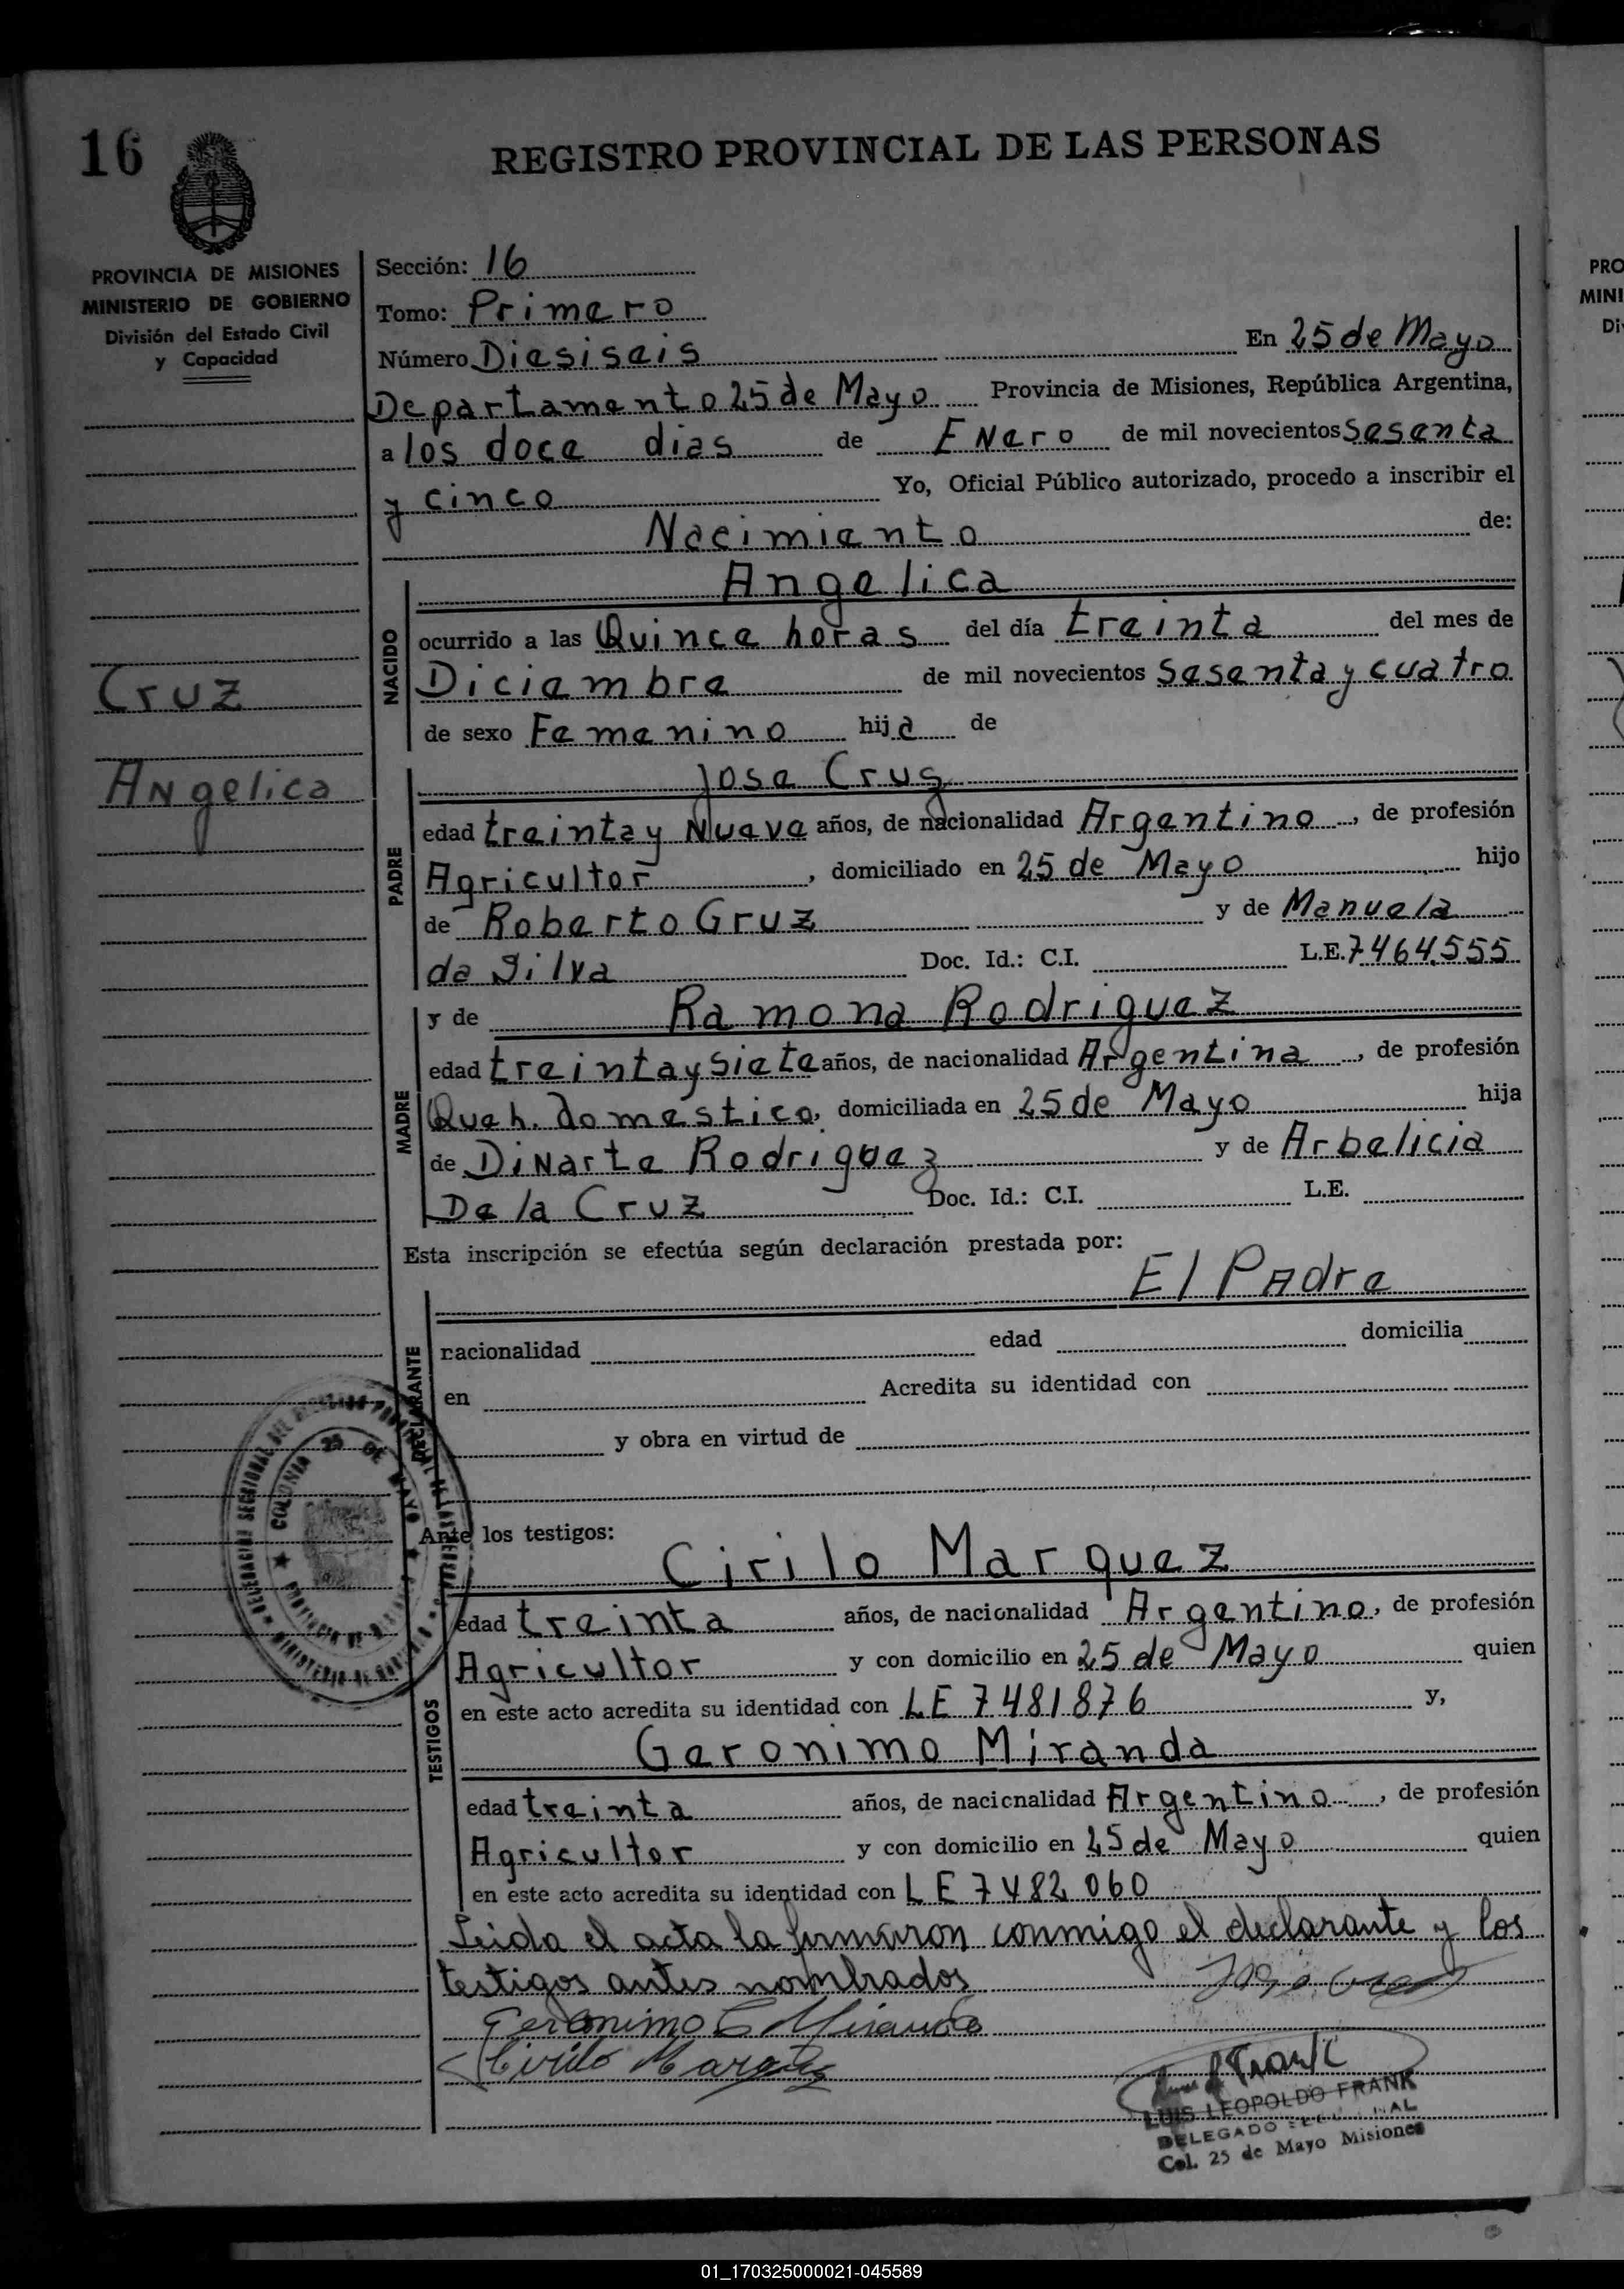 16
REGISTRO PROVINCIAL DE LAS PERSONAS
PROVINCIA DE MISIONES
MINISTERIO DE GOBIERNO
División del Estado Civil
y Capacidad
Cruz
Angelica
Sección: 16
Tomo: Primero
Número Diesiseis En 25 de Mayo
Departamento 25 de Mayo Provincia de Misiones, República Argentina,
a los doce dias de Enero de mil novecientos Sesenta
y cinco Yo, Oficial Público autorizado, procedo a inscribir el
Nacimiento de:
NACIDO
Angelica
ocurrido a las Quince horas del día treinta del mes de
Diciembre de mil novecientos Sesenta y cuatro
de sexo Femenino hija de
PADRE
Jose Cruz
edad treinta y Nueve años, de nacionalidad Argentino, de profesión
Agricultor, domiciliado en 25 de Mayo hijo
de Roberto Cruz y de Manuela
da Silva Doc. Id.: C.I. L.E. 7464.555
MADRE
y de Ramona Rodriguez
edad treinta y Siete años, de nacionalidad Argentina, de profesión
Queh. domestico, domiciliada en 25 de Mayo hija
de Dinarte Rodriguez y de Arbelicia
De la Cruz Doc. Id.: C.I. L.E.
Esta inscripción se efectúa según declaración prestada por:
DECLARANTE
El Padre
nacionalidad edad domicilia
en Acredita su identidad con
y obra en virtud de
COLONIA 25 DE MAYO
Ante los testigos:
TESTIGOS
Cirilo Marquez
edad treinta años, de nacionalidad Argentino, de profesión
Agricultor y con domicilio en 25 de Mayo quien
en este acto acredita su identidad con LE 7481876 y,
Geronimo Miranda
edad treinta años, de nacionalidad Argentino, de profesión
Agricultor y con domicilio en 25 de Mayo quien
en este acto acredita su identidad con LE 7482060
Leida el acta la firmaron conmigo el declarante y los
testigos antes nombrados
Geronimo C Miranda
Cirilo Marquez
LUIS LEOPOLDO FRANK
DELEGADO
Col. 25 de Mayo Misiones
PRO
MINI
Di
01_170325000021-045589